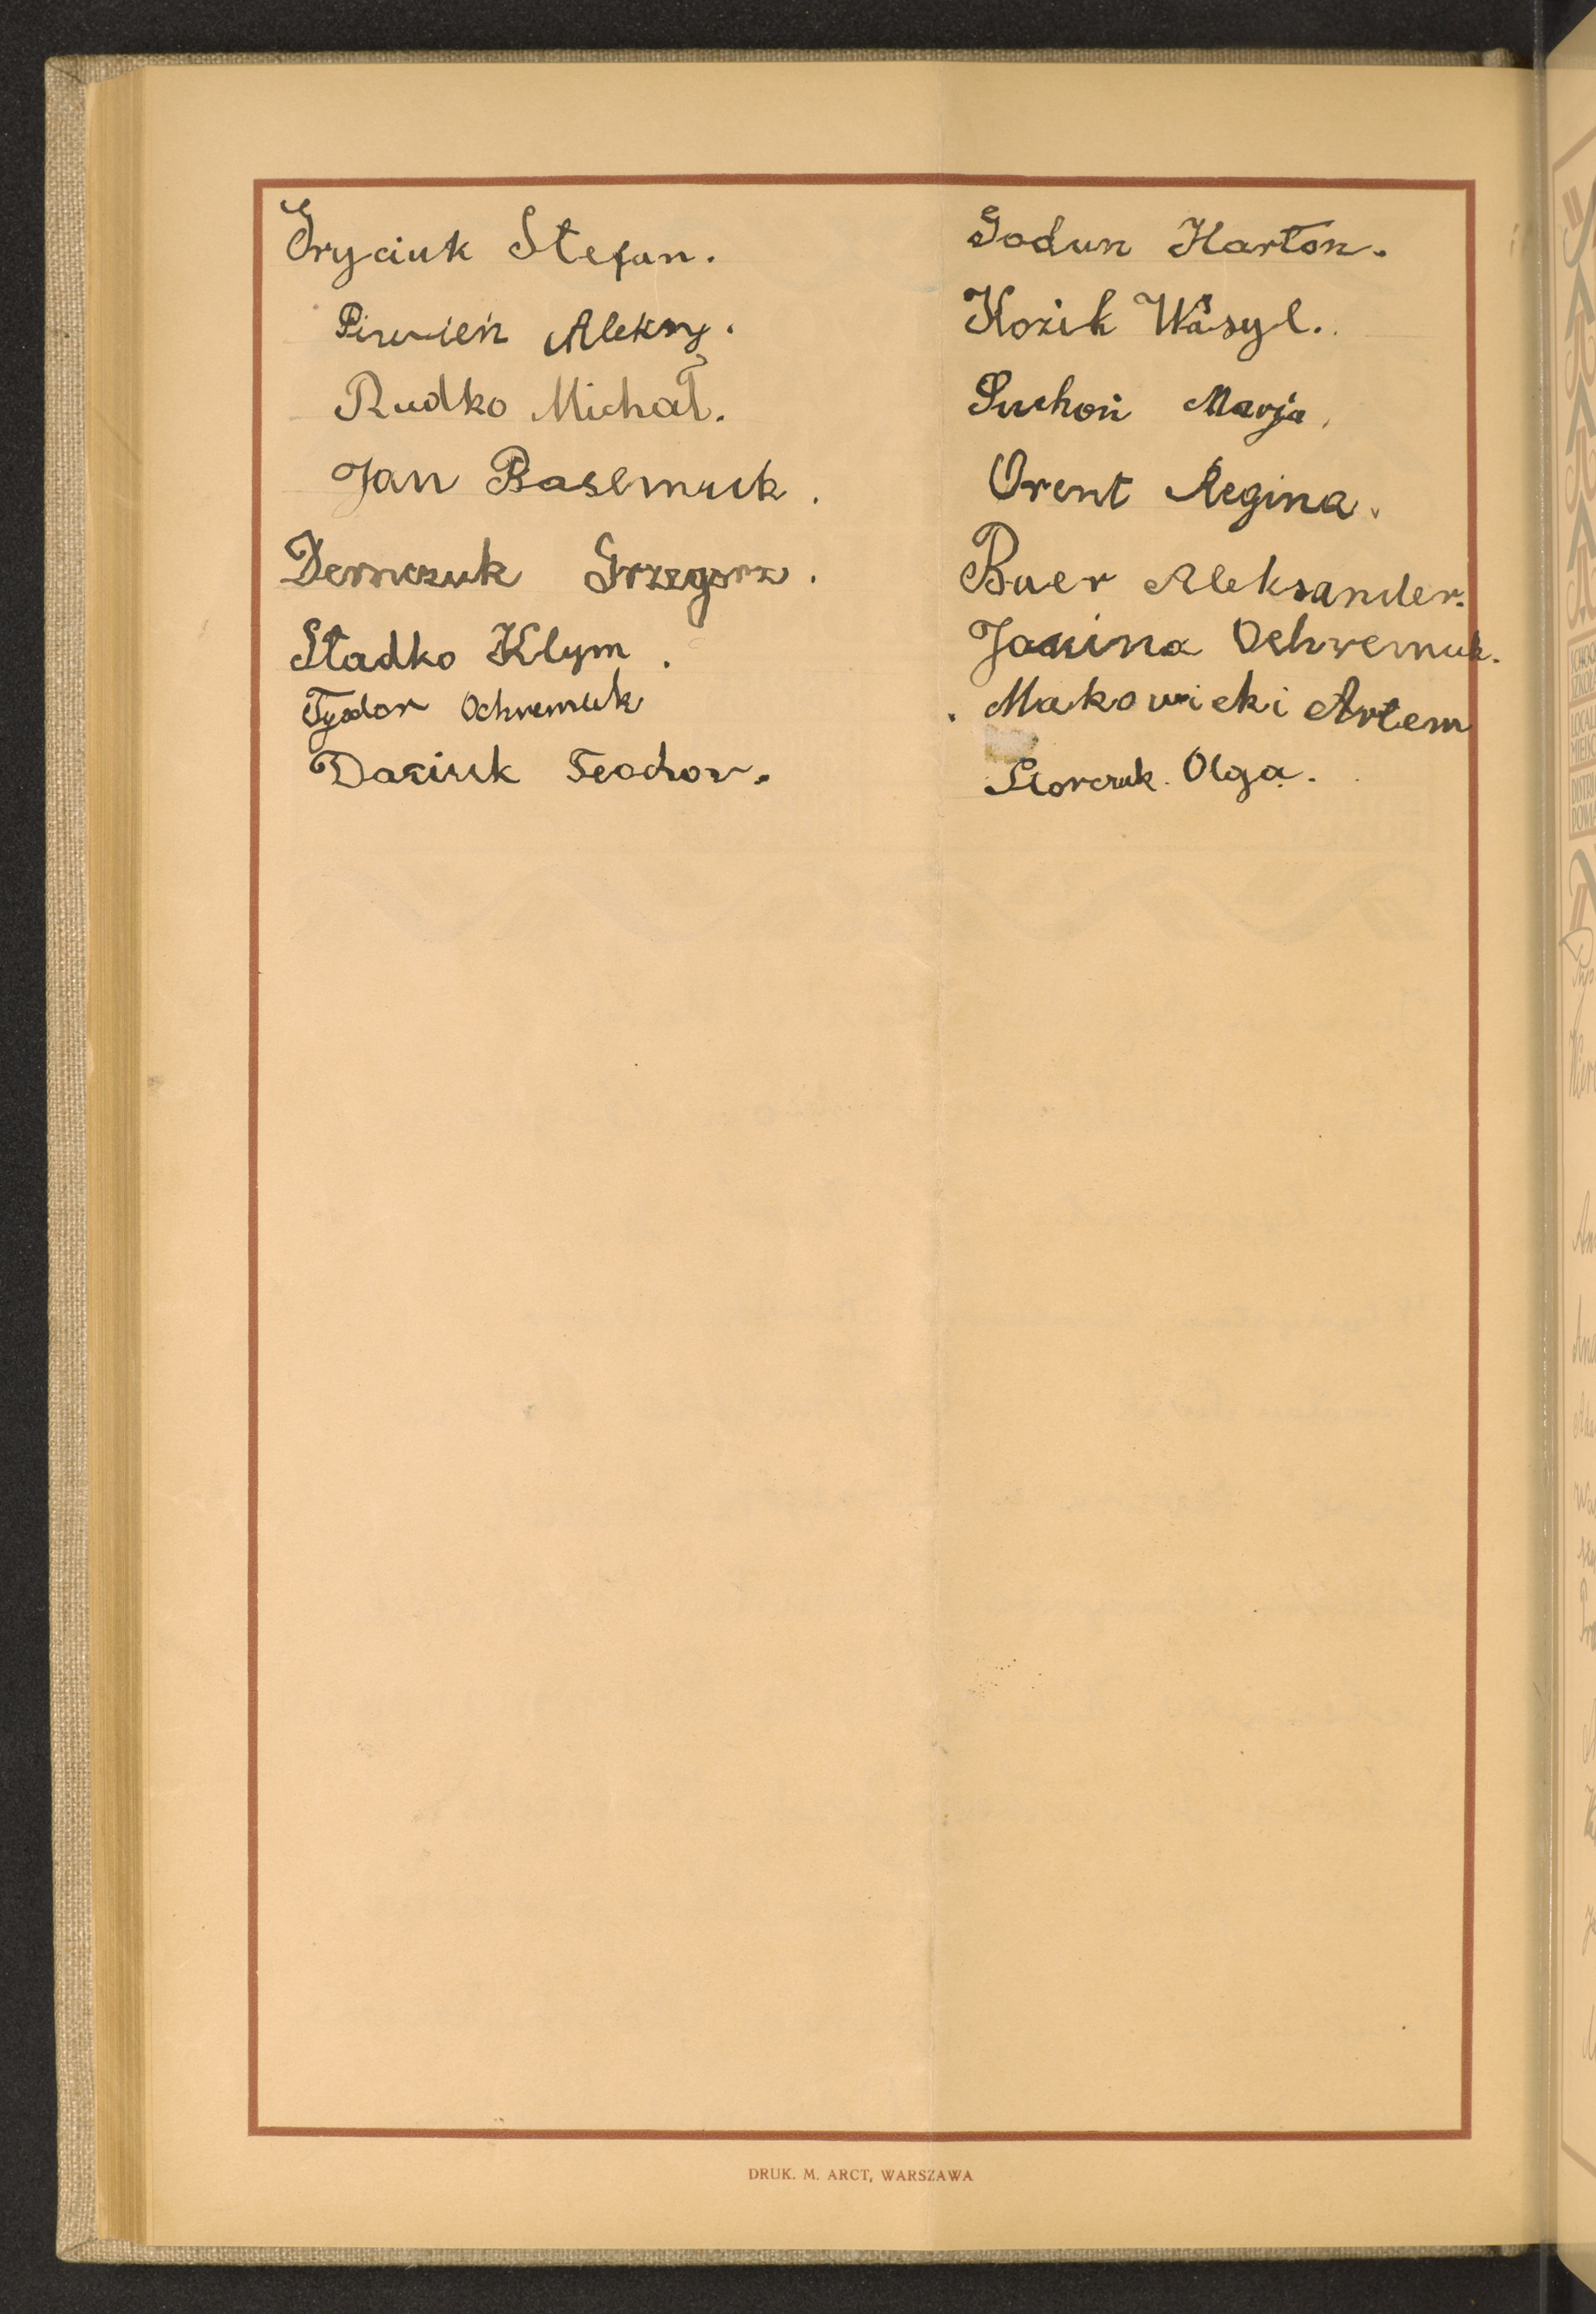 Gryciuk Stefan.
Piwień Aleksy.
Rudko Michał.
Jan Baslmuk.
Demczuk Grzegorz.
Stadko Klym.
Tyodor Ochremuk
Daciuk Teodor.
Godun Harton.
Kozik Wasyl.
Suchoń Marja.
Orent Regina.
Baer Aleksander.
Janina Ochremuk.
Makowicki Artem
Olga.
DRUK. M. ARCT, WARSZAWA